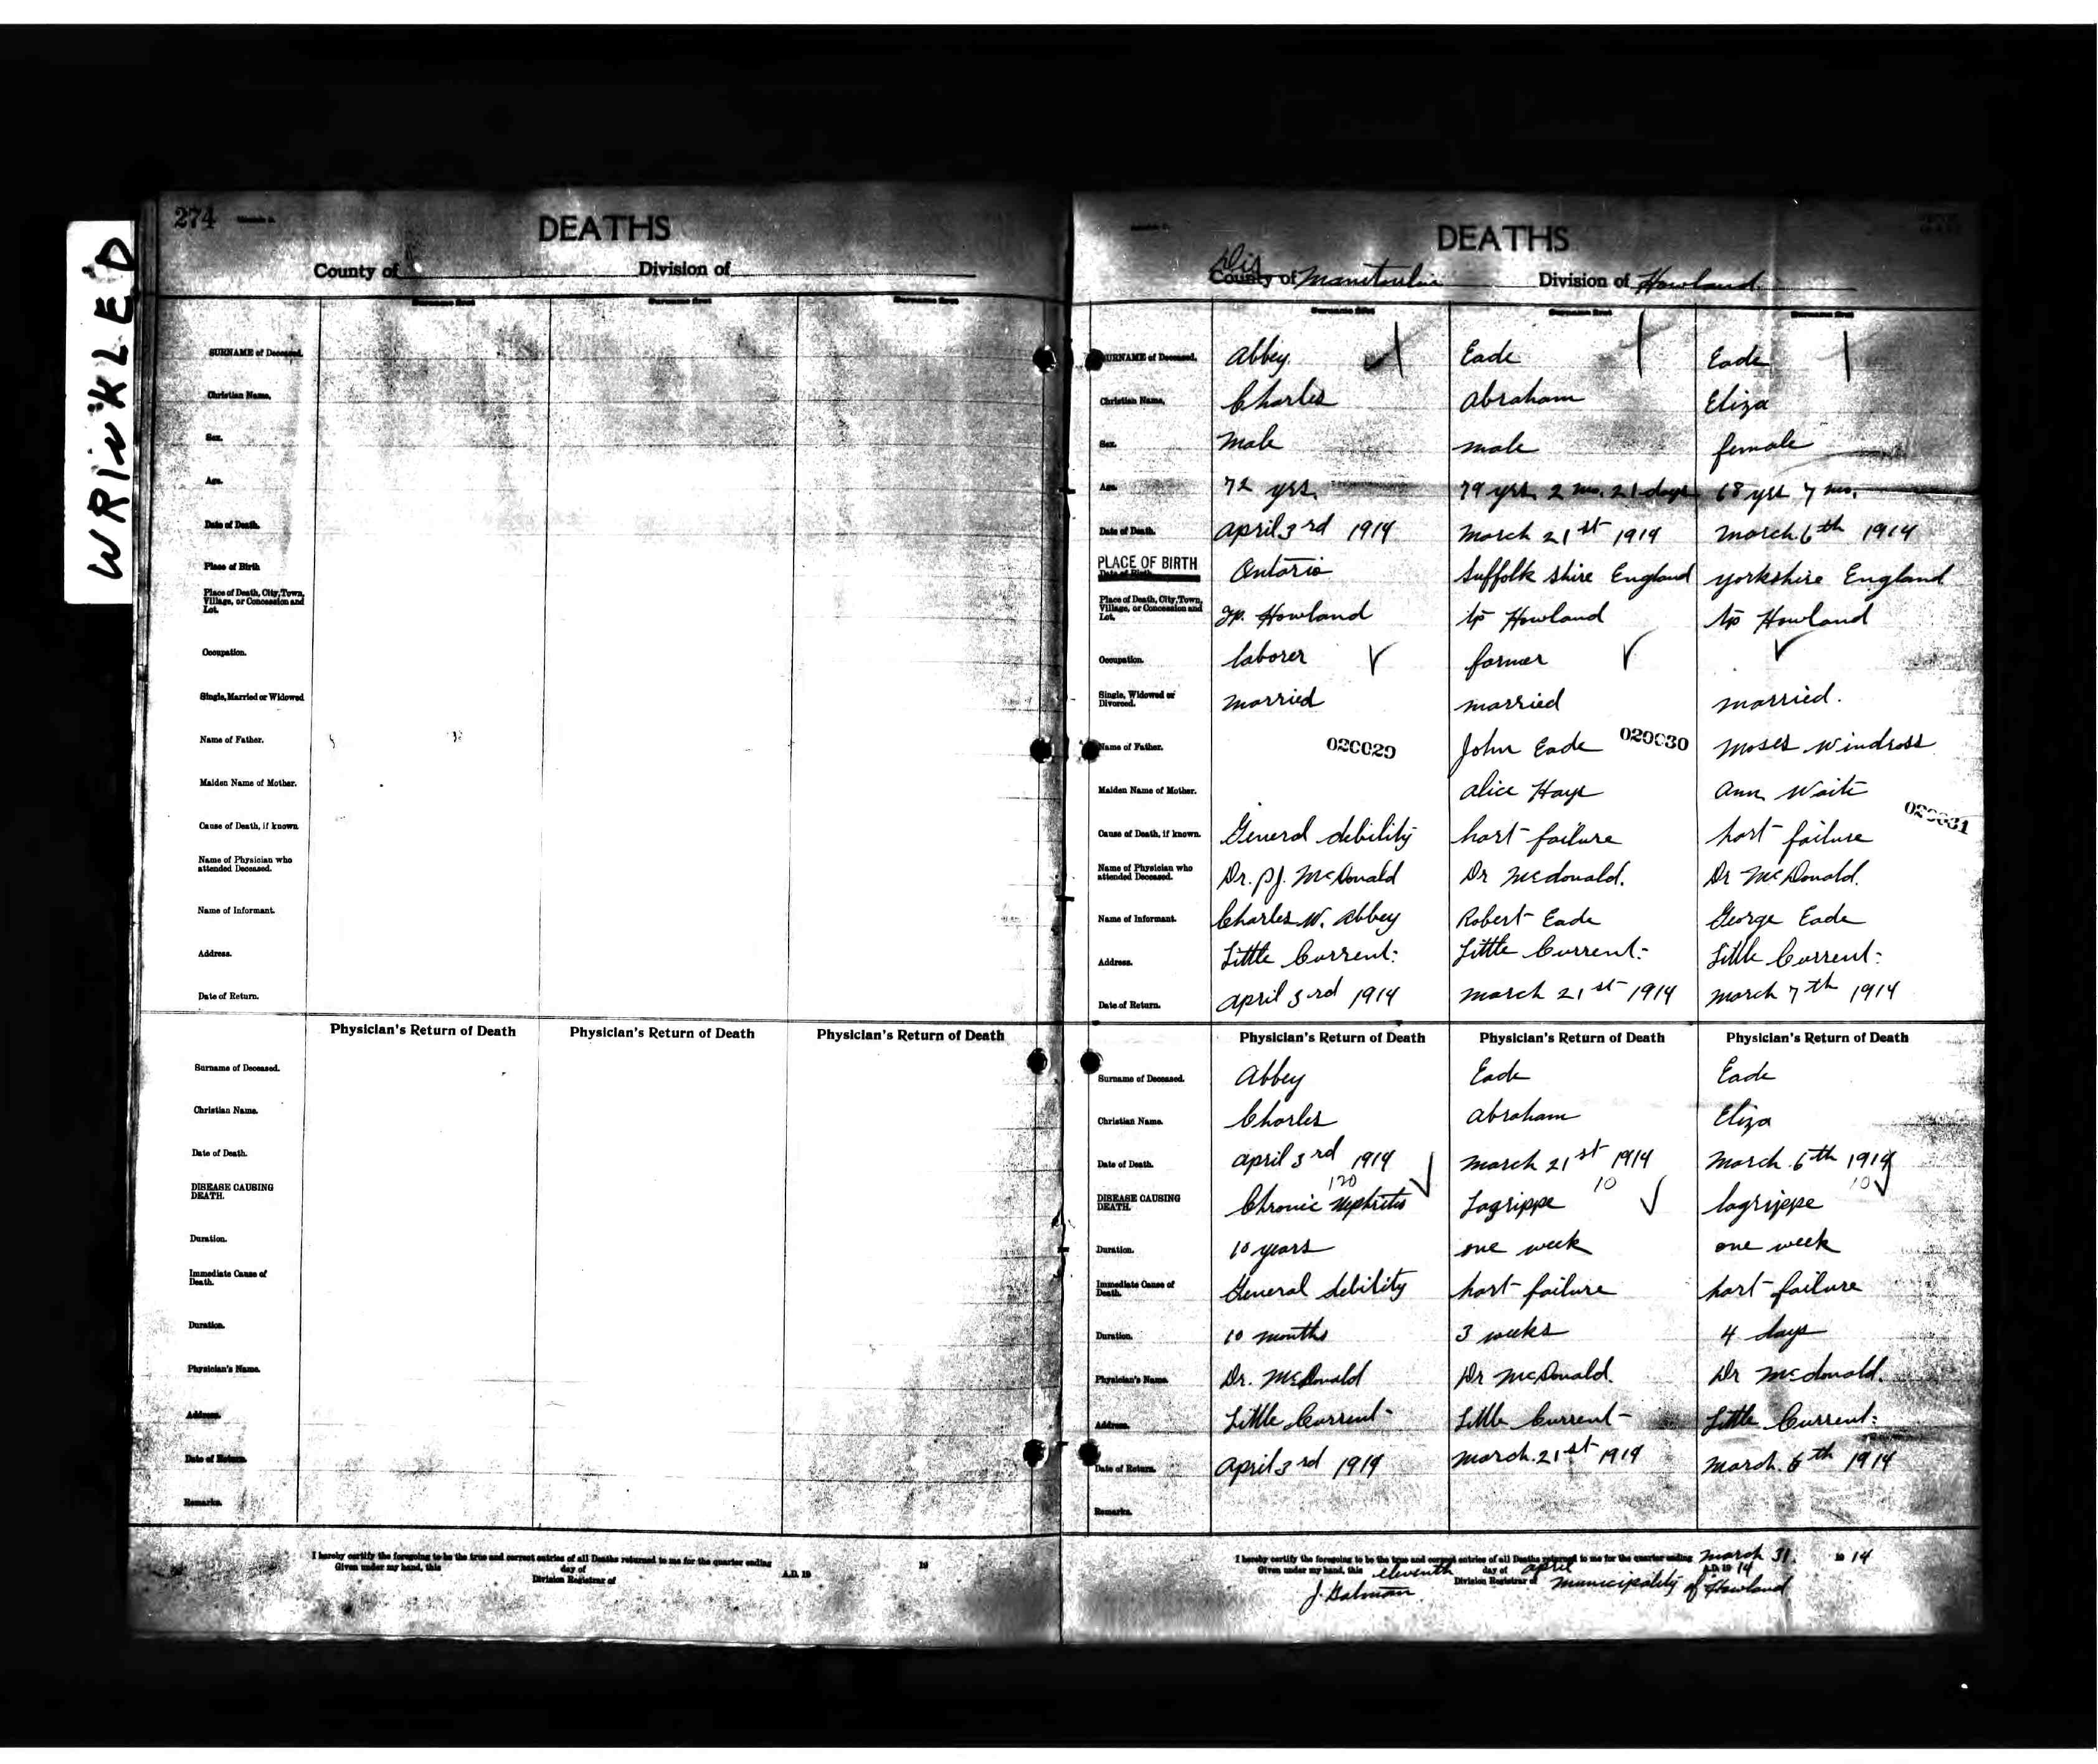 WRINKLED
274
DEATHS
County of
Division of
Surname first
Surname first
Surname first
SURNAME of Deceased.
Christian Name.
Sex.
Age.
Date of Death.
Place of Birth
Place of Death, City, Town, Village, or Concession and Lot.
Occupation.
Single, Married or Widowed
Name of Father.
Maiden Name of Mother.
Cause of Death, if known
Name of Physician who attended Deceased.
Name of Informant.
Address.
Date of Return.
Physician's Return of Death
Physician's Return of Death
Physician's Return of Death
Surname of Deceased.
Christian Name.
Date of Death.
DISEASE CAUSING DEATH.
Duration.
Immediate Cause of Death.
Duration.
Physician's Name.
Address.
Date of Return.
Remarks.
I hereby certify the foregoing to be the true and correct entries of all Deaths returned to me for the quarter ending 19
Given under my hand, this day of A.D. 19
Division Registrar of
DEATHS
Dis
County of Manitoulin Division of Howland
Surname first Surname first Surname first
SURNAME of Deceased. Abbey Eade Eade
Christian Name. Charles Abraham Eliza
Sex. Male male female
Age. 72 yrs. 79 yrs 2 mo. 21 days 68 yrs 7 mo.
Date of Death. April 3rd 1914 March 21st 1914 March 6th 1914
PLACE OF BIRTH Ontario Suffolk shire England Yorkshire England
Place of Death, City, Town, Village, or Concession and Lot. Tp. Howland tp Howland tp Howland
Occupation. laborer farmer
Single, Widowed or Divorced. married married married.
Name of Father. 020029 John Eade 020030 Moses Windross
Maiden Name of Mother. Alice Hays Ann Waite
020031
Cause of Death, if known. General debility hart failure hart failure
Name of Physician who attended Deceased. Dr. P.J. McDonald Dr Mcdonald. Dr McDonald.
Name of Informant. Charles W. Abbey Robert Eade George Eade
Address. Little Current: Little Current: Little Current:
Date of Return. April 3rd 1914 March 21st 1914 March 7th 1914
Physician's Return of Death Physician's Return of Death Physician's Return of Death
Surname of Deceased. Abbey Eade Eade
Christian Name. Charles Abraham Eliza
Date of Death. April 3rd 1914 March 21st 1914 March 6th 1914
120 10 10
DISEASE CAUSING DEATH. Chronic Nephritis Lagrippe lagrippe
Duration. 10 years one week one week
Immediate Cause of Death. General debility hart failure hart failure
Duration. 10 months 3 weeks 4 days
Physician's Name. Dr. McDonald Dr McDonald. Dr Mcdonald.
Address. Little Current Little Current Little Current:
Date of Return. April 3rd 1914 March 21st 1914 March 6th 1914
Remarks.
I hereby certify the foregoing to be the true and correct entries of all Deaths returned to me for the quarter ending March 31. 1914
Given under my hand, this eleventh day of April A.D. 1914
J. Batman Division Registrar of Municipality of Howland